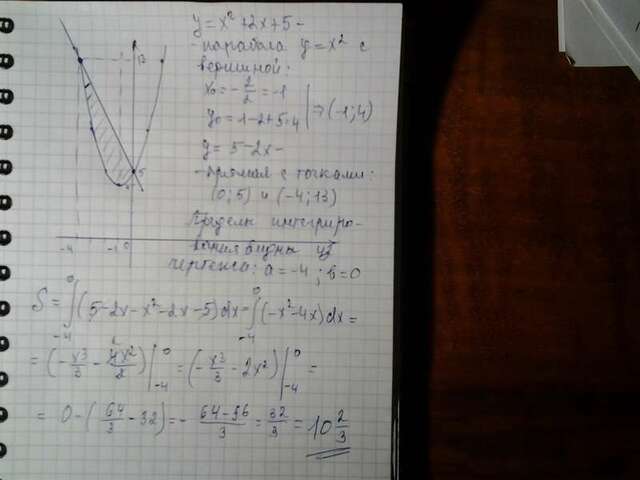 y = x² + 2x + 5 -
- парабола y = x² с
вершиной:
x₀ = - 2/2 = -1
y₀ = 1 - 2 + 5 = 4 | ⇒ (-1; 4)
y = 5 - 2x -
- прямая с точками:
(0; 5) и (-4; 13)
Пределы интегриро-
вания видны из
чертежа: a = -4; b = 0
13
5
-4
-1
0
S = ∫₋₄⁰ (5 - 2x - x² - 2x - 5)dx = ∫₋₄⁰ (-x² - 4x)dx =
= (- x³/3 - 4x²/2) |₋₄⁰ = (- x³/3 - 2x²) |₋₄⁰ =
= 0 - (64/3 - 32) = - 64 - 96/3 = 32/3 = 10 2/3